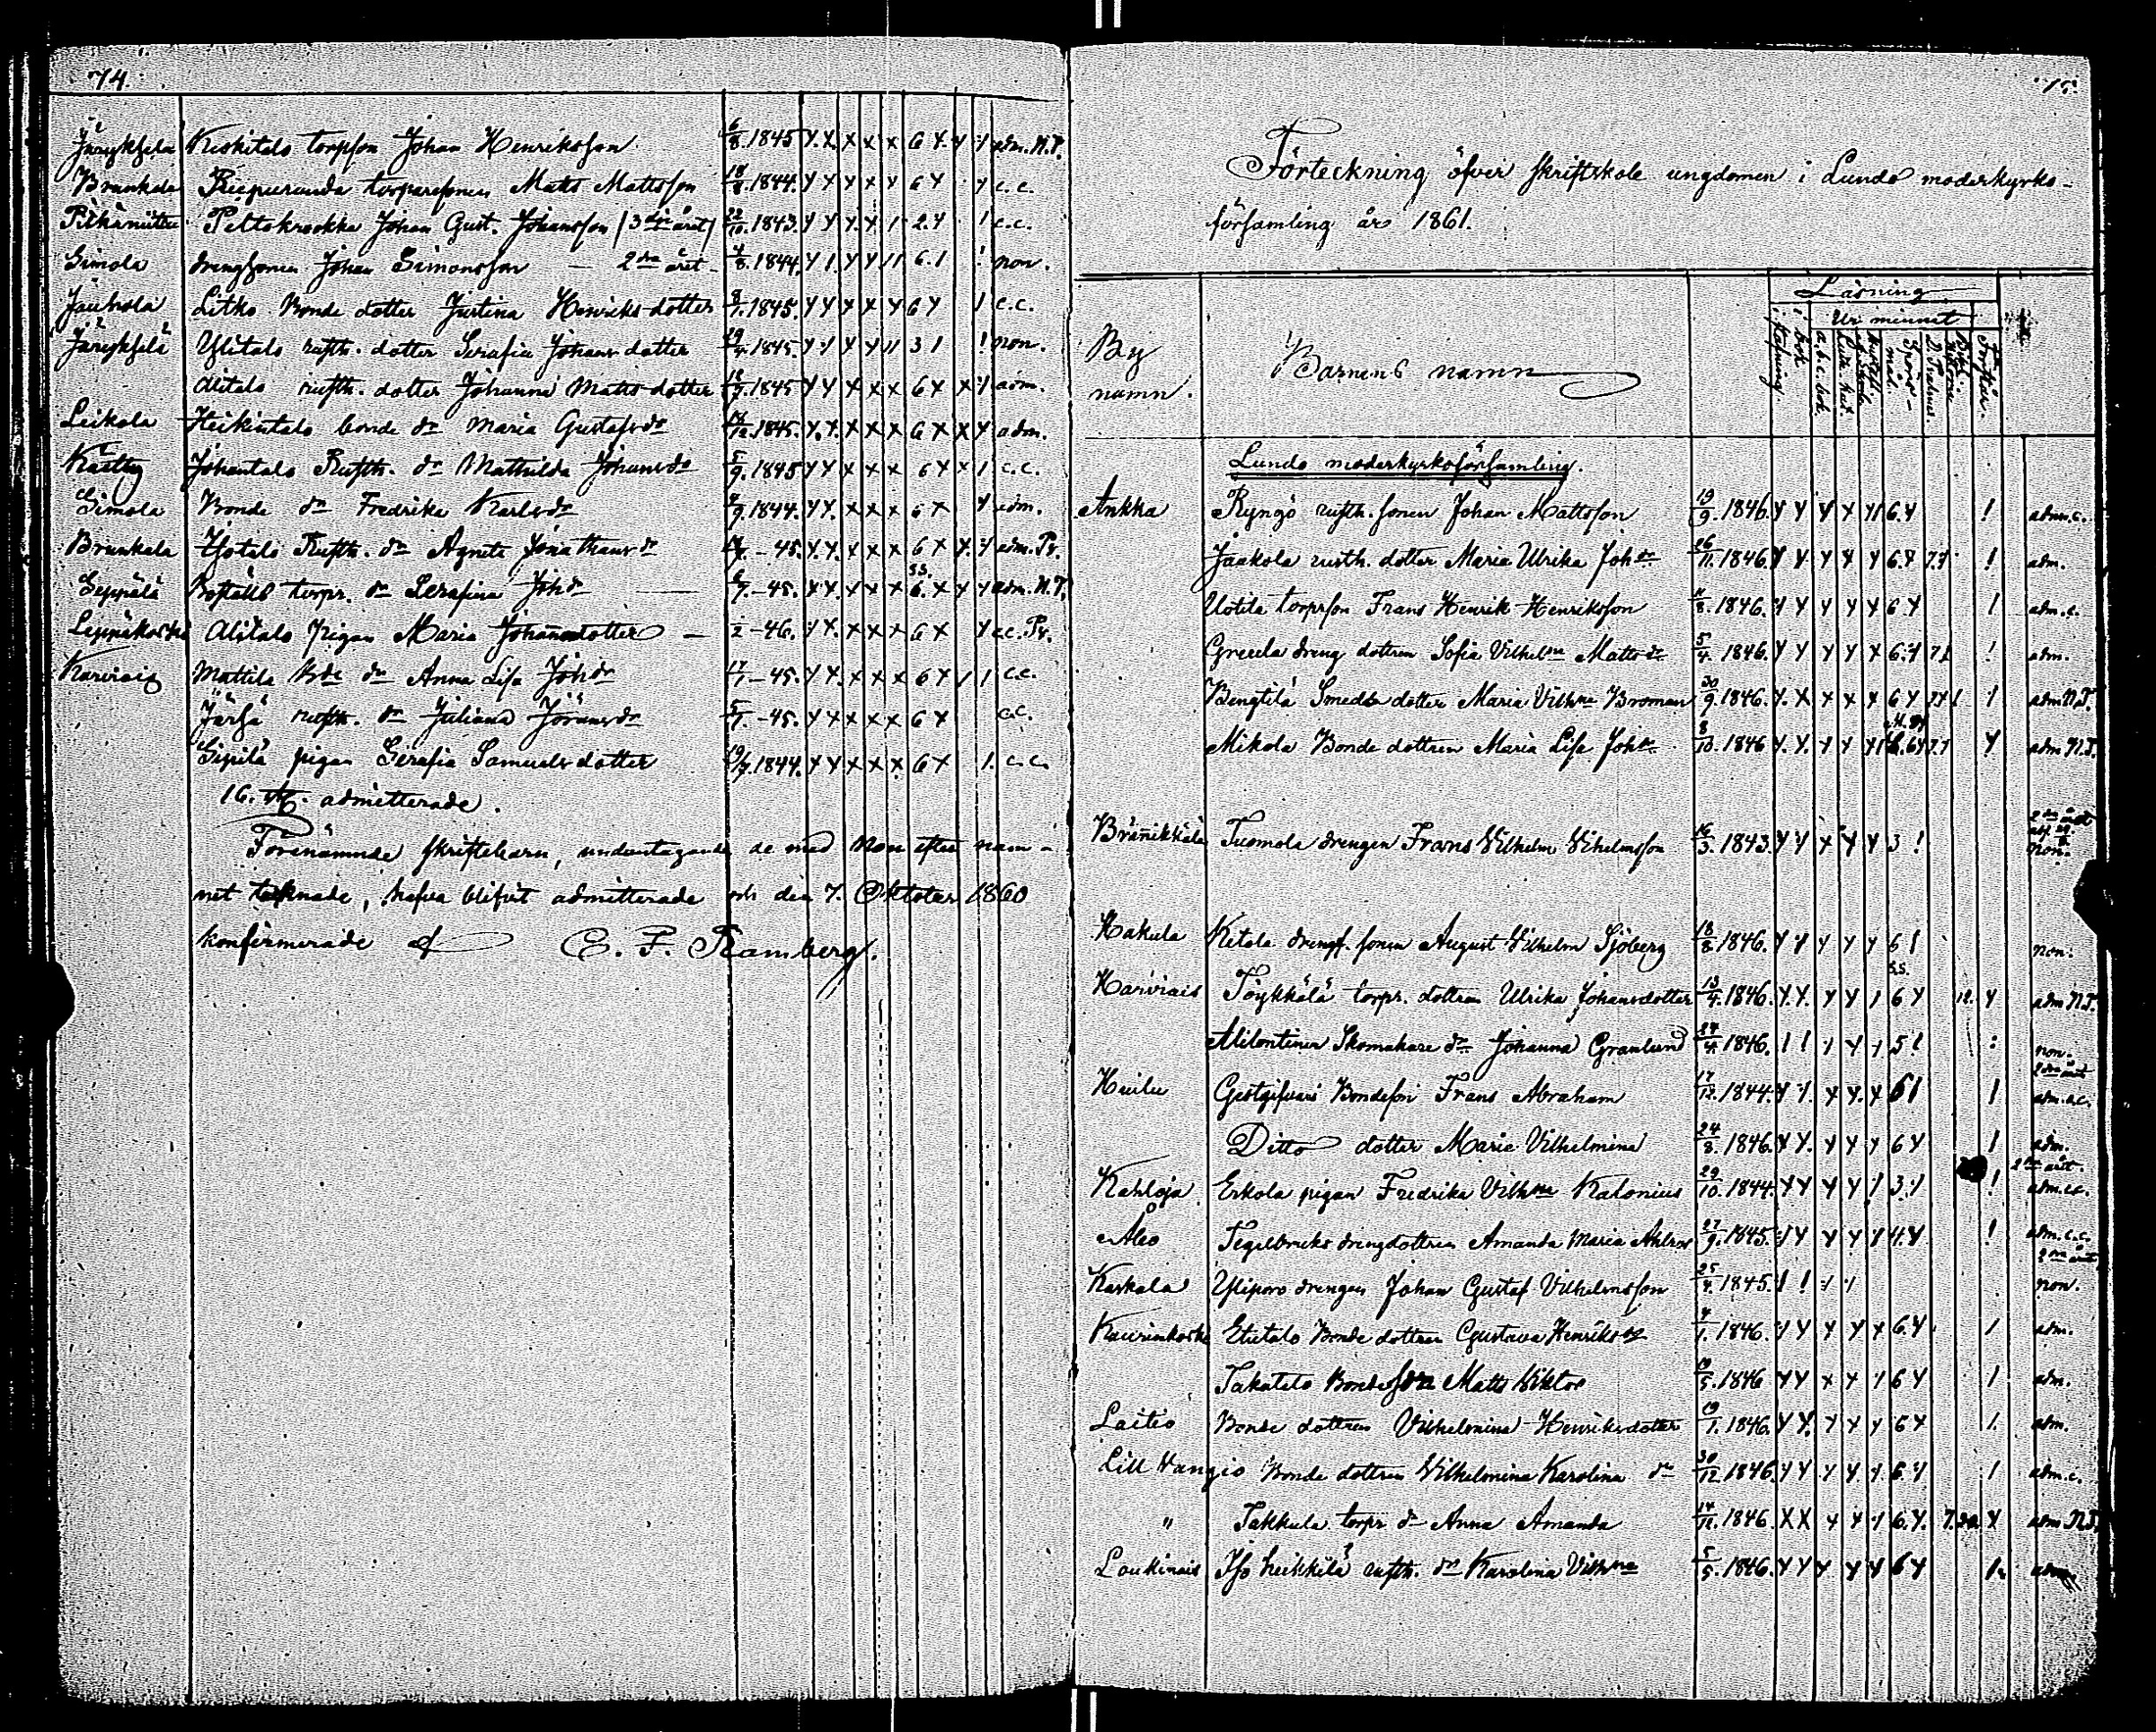 74.
Järykselä Keskitalo torpson Johan Henriksson 6/8. 1845 y. x. x x x 6 y. y 1 adm. N.T.
Brunkala torparesonen Matts Mattsson 18/8. 1844. y y y y y 6 y y c.c.
Peltokrookka Johan Gust. Johansson / 3dje året / 22/10. 1843. y y y. y 1 2. y 1 c.c.
Simola drengsonen Johan Simonsson — 2dra året - 4/8. 1844. y 1. y y 11 6. 1 ! non.
Jauhola Litko Bonde dotter Justina Henriks dotter 9/7. 1845. y y y x y 6 y 1 c.c.
Järykselä Ylitalo rusth. dotter Serafia Johans dotter 29/4. 1845. y y x y 11 3 1 ! non.
Alitalo rusth. dotter Johanna Matts dotter 18/7. 1845 y y x x x 6 x x y adm.
Leikola Heikintalo bonde dr Maria Gustafsdr 14/12. 1845. y. y. x x x 6 x x y adm.
Johantalo Rusth. dr Mathilda Johansdr 5/9. 1845 y y x x x 6 y x 1 c.c.
Simola Bonde dr Fredrika Karlsdr 7/9. 1844. y y. x x x 6 x y adm.
Brunkala Isotalo Rusth. dr Agneta Jonathansdr - 45. y. y. y x x 6 x y. y adm. Pr.
Seppälä Boställs torpr. dr Serafina Johdr 6/7. - 45. y y. x x x s.s. 6. x y y adm. N.T.
Alitalo pigan Maria Johansdotter — 1/2 - 46. y y. x x x 6 x y c.c. Pr.
Karviais Mattila Bde dr Anna Lisa Johdr 17/7 - 45. y y. x x x 6 y 1 1 c.c.
Järsä rusth. dr Juliana Jöransdr 5/7. - 45. y y x x x 6 y c.c.
Sipilä pigan Serafia Samuels dotter 19/7. 1844. y y x x x 6 x 1. c.c.
16. st. admitterade.
Förenämnde skriftebarn, undantagande de med Non efter nam-
net teknade, hafva blifvit admitterade och den 7. Oktober 1860
konfirmerade af C. F. Ramberg.
75.
Förteckning öfver skriftskole ungdomen i Lundo moderkyrko-
församling år 1861.
Läsning
Ur minnet
By namn. Barnens namn i stafning i bok a. b. c. bok. Spörs-mål D. Psalmer
Lundo moderkyrkoförsamling.
Ankka Ryngö rusth. sonen Johan Mattsson 19/9. 1846. y y y x y1 6. y ! adm. c.
Jaakola rusth. dotter Maria Ulrika Johdr 26/11. 1846. y y y y y 6. y 7. y ! adm.
Uotila torpson Frans Henrik Henriksson 11/8. 1846. y y y y y 6 y 1 adm. c.
Greula dreng dottren Sofia Vilhelma Mattsdr 5/4. 1846. y y y y x 6. y 7 1 ! adm.
Bengtilä Smeds dotter Maria Vilhma Broman 30/9. 1846. y. x x x x 6 y 7 y 1 1 adm N.T.
Mikola Bonde dottren Maria Lisa Johdr 8/10. 1846 y. y. y y y1 6 y 7. y y adm N.T.
Bränikkälä Tuomola drengen Frans Vilhelm Vilhelmsson 16/3. 1843. y y x y y 3 ! 2dra året non.
Kakula Ketola drengs. sonen August Vilhelm Sjöberg 18/8. 1846. y y y y y 6 1 non.
Karviais Töykkälä torpr. dottren Ulrika Johansdotter 13/4. 1846. y. y. y y 1 s.s. 6 y 12. y adm N.T.
Alilontinen Skomakare dr Johanna Granlund 24/4. 1846. 1 ! y y y 5 ! : non.
Huilu Gestgifvari Bondeson Frans Abraham 17/12. 1844. y y. y y. x 6 1 1 2dra året adm. c.c.
Ditto dotter Maria Vilhelmina 24/8. 1846. y y. y y y 6 y 1 adm.
Kahloja Erkola pigan Fredrika Vilhma Kalonius 29/10. 1844. y y y y 1 3. 1 ! 2dra året. adm. c.c.
Åbo Tegelbruks drengdottren Amanda Maria 27/9. 1845. y y y y y 4. y ! adm. c.c.
Kaskala Ylipovo drengen Johan Gustaf Vilhelmsson 25/4. 1845. 1 ! y y 2dra året non.
Kaurinkoski Etutalo Bonde dottren Gustava Henriksdr 4/1. 1846. y y y y x 6. y 1 adm.
Takatalo Bondeson Matts Viktor 19/5. 1846 y y x x y 6 y 1 adm.
Laitio Bonde dottren Vilhelmina Henriksdotter 19/1. 1846. y y. y y y 6 y 1. adm.
Lill Vangio Bonde dottren Vilhelmina Karolina dr 30/12. 1846. y y y y y 6. y 1 adm. c.
" Takkula torpr dr Anna Amanda 14/11. 1846. x x y y y 6. y. 7. y adm N.T.
Loukinais Iso heikkilä rusth. dr Karolina Vilhma 5/5. 1846. y y y y y 6 y 1. adm.